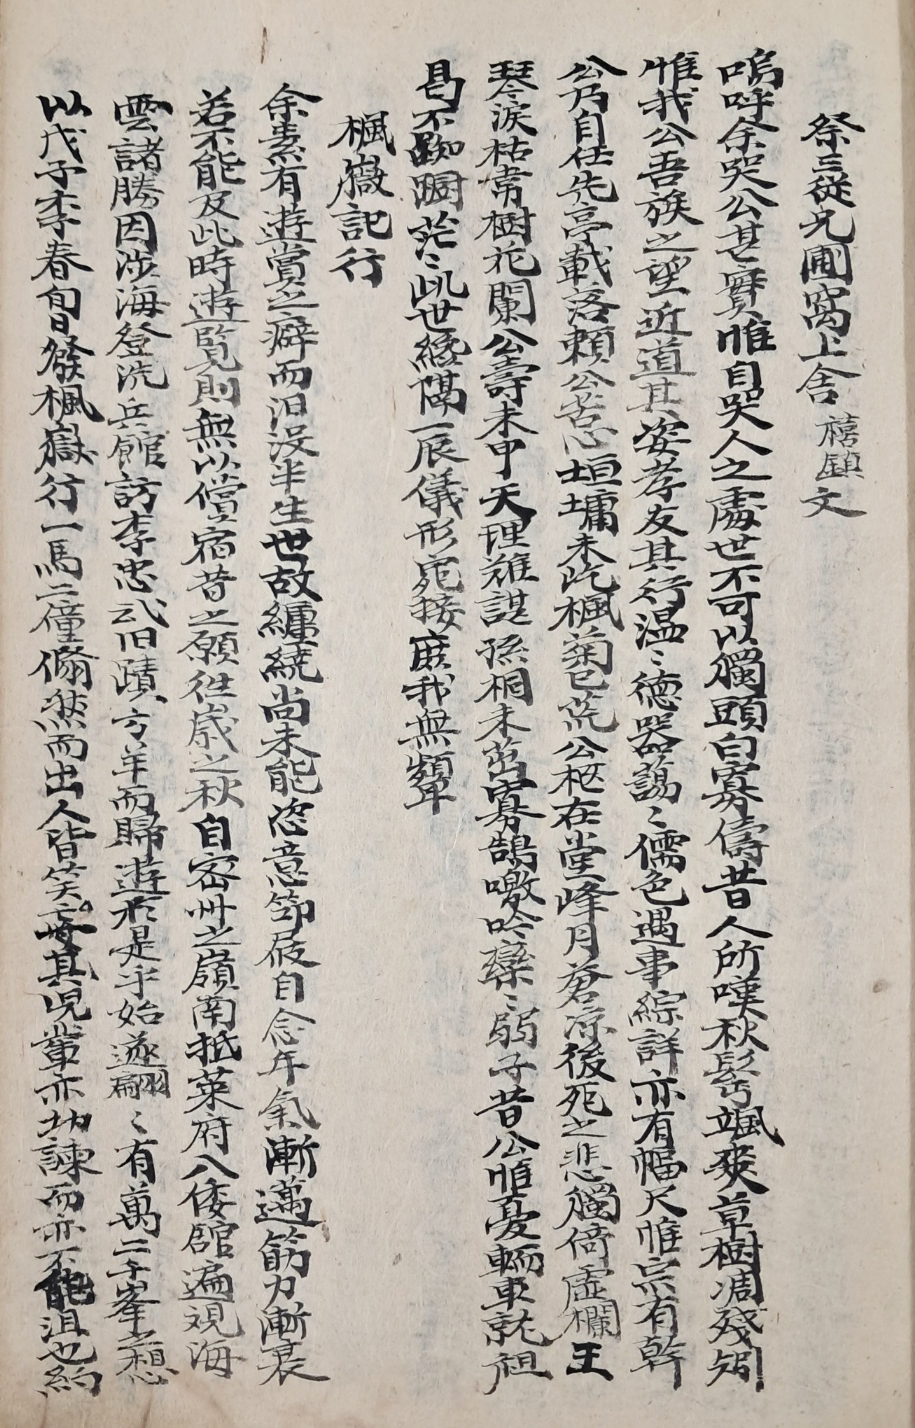 祭三從兄圃窩上舍禧鎭文
嗚呼余哭公甚實惟自哭人之處世不可以獨頭白寡儔昔人所嘆秋髩颯爽草樹凋殘矧
惟我公吾族之望近道其姿孝友其行温〻德器藹〻儒色遇事綜詳亦有幅尺惟宗有幹
公乃自任先亭載落賴公苦心垣墉未訖楓菊已荒公柩在堂峰月蒼凉後死之悲獨倚虛欄王
琴淚枯常樹花闌公壽未甲天理難諶孫桐未茁寡鵠噭吟欒〻弱子昔公惟憂輀車就祖
曷不踟躕茫〻此世緩隔一辰儀形宛接庶我無顰
楓嶽記行
余素有遊賞之癖而汨沒半生世故纏繞尚未能恣意笻屐自念年氣漸邁筋力漸衰
若不能及此時遊覽則無以償宿昔之願徃歲之秋自密州之嶺南抵萊府入倭館遍視海
雲諸勝因涉海登洗兵館訪李忠武旧蹟方羊而歸遊於是乎始遂翩〻有萬二千峯之想
以戊子季春旬日發楓嶽行一馬二僮翛然而出人皆笑之其児輩亦功諫而亦不能沮也約